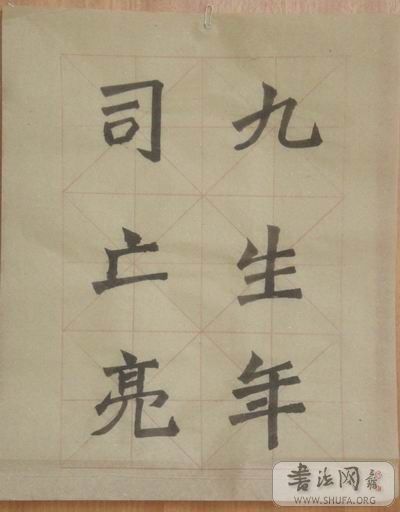 九生年
司亡亮
书法网
WWW.SHUFA.ORG